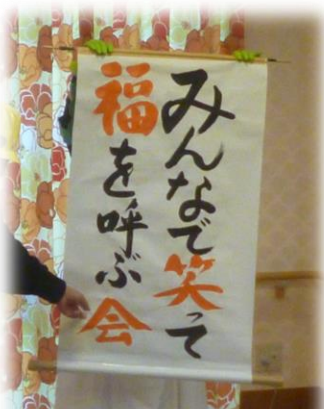 みんなで笑って
福を呼ぶ会